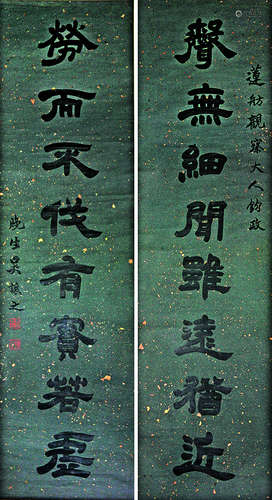 蓮舫觀察大人鈞政
聲無細聞雖遠猶近
勞而不伐有實若虛
晚生吳